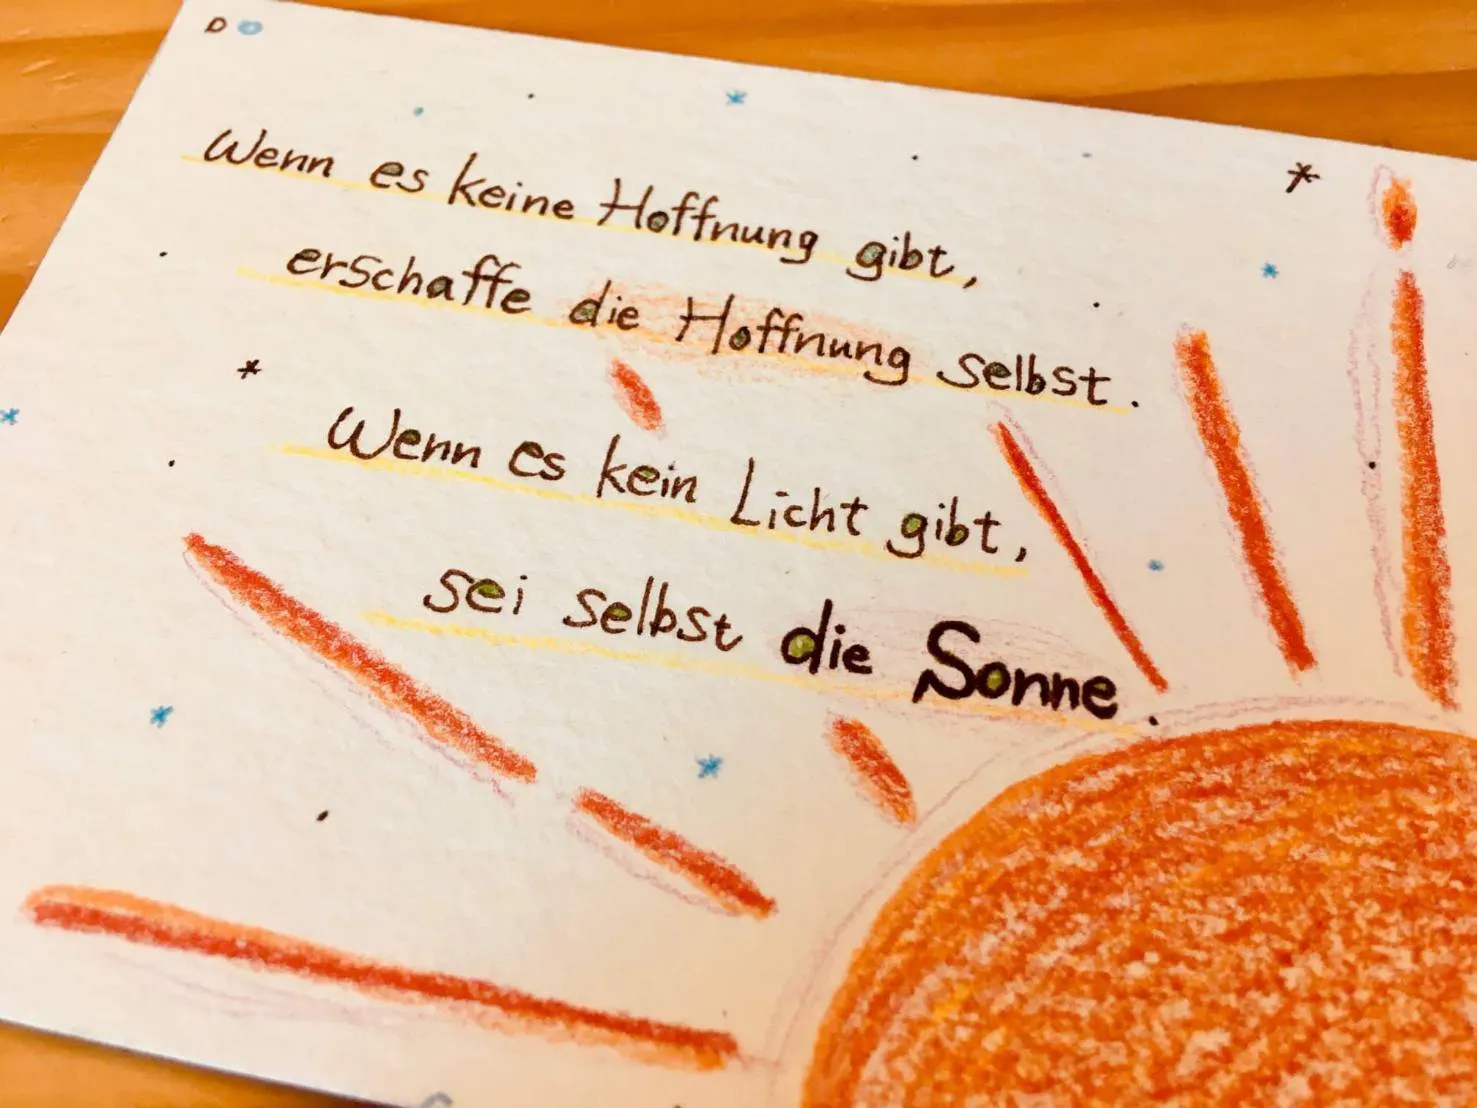 Wenn es keine Hoffnung gibt,
erschaffe die Hoffnung selbst.
Wenn es kein Licht gibt,
sei selbst die Sonne.